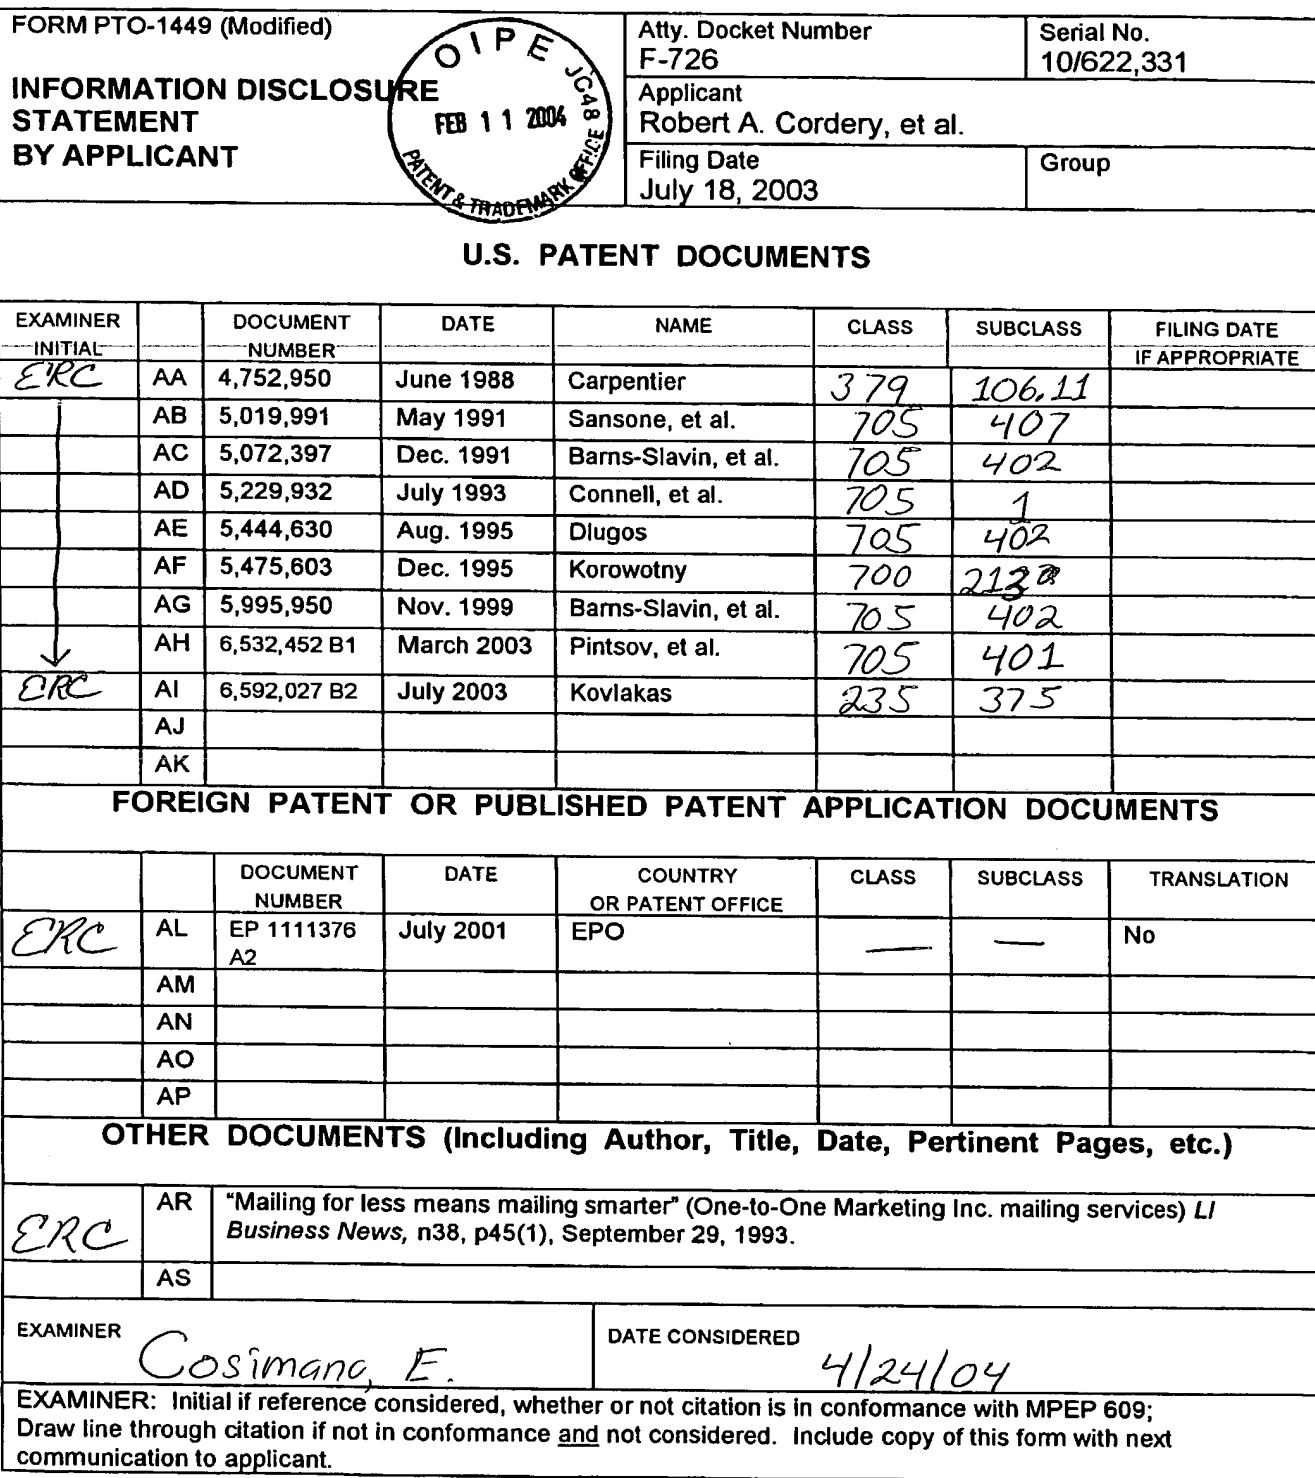 FORM PTO-1449 (Modified)
INFORMATION DISCLOSURE
STATEMENT
BY APPLICANT
OIPE JC48
FEB 11 2004
PATENT & TRADEMARK OFFICE
Atty. Docket Number
F-726
Serial No.
10/622,331
Applicant
Robert A. Cordery, et al.
Filing Date
July 18, 2003
Group
U.S. PATENT DOCUMENTS
EXAMINER INITIAL DOCUMENT NUMBER DATE NAME CLASS SUBCLASS FILING DATE IF APPROPRIATE
ERC AA 4,752,950 June 1988 Carpentier 379 106.11
AB 5,019,991 May 1991 Sansone, et al. 705 407
AC 5,072,397 Dec. 1991 Barns-Slavin, et al. 705 402
AD 5,229,932 July 1993 Connell, et al. 705 1
AE 5,444,630 Aug. 1995 Dlugos 705 402
AF 5,475,603 Dec. 1995 Korowotny 700
AG 5,995,950 Nov. 1999 Barns-Slavin, et al. 705 402
AH 6,532,452 B1 March 2003 Pintsov, et al. 705 401
ERC AI 6,592,027 B2 July 2003 Kovlakas 235 375
AJ
AK
FOREIGN PATENT OR PUBLISHED PATENT APPLICATION DOCUMENTS
DOCUMENT NUMBER DATE COUNTRY OR PATENT OFFICE CLASS SUBCLASS TRANSLATION
ERC AL EP 1111376 A2 July 2001 EPO — — No
AM
AN
AO
AP
OTHER DOCUMENTS (Including Author, Title, Date, Pertinent Pages, etc.)
ERC AR "Mailing for less means mailing smarter" (One-to-One Marketing Inc. mailing services) LI
Business News, n38, p45(1), September 29, 1993.
AS
EXAMINER Cosimano, E.
DATE CONSIDERED 4/24/04
EXAMINER: Initial if reference considered, whether or not citation is in conformance with MPEP 609;
Draw line through citation if not in conformance and not considered. Include copy of this form with next
communication to applicant.